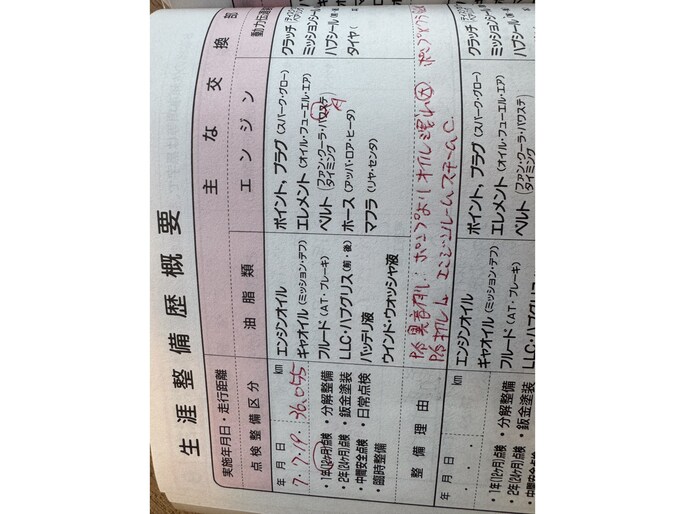 生涯整備歴概要
実施年月日・走行距離
点検整備区分
主な交換
油脂類
エンジン
動力伝達
年 月 日 km
7.7.19. 36,055
・1年(12ヶ月)点検 ・分解整備
・2年(24ヶ月)点検 ・鈑金塗装
・中間安全点検 ・日常点検
・臨時整備
エンジンオイル
ギャオイル(ミッション・デフ)
フルード(AT・ブレーキ)
LLC・ハブグリス(前・後)
バッテリ液
ウインド・ウオッシャ液
ポイント、プラグ(スパーク・グロー)
エレメント(オイル・フューエル・エア)
ベルト(ファン・クーラ・パワステ
タイミング
ホース(アッパ・ロア・ヒータ)
マフラ(リヤ・センタ)
クラッチ
ミッションシール
ハブシール
タイヤ(
整備理由
P/S異音有り。ポンプよりオイル漏れ大
P/S エンジンルームスチームC.
年 月 日 km
・1年(12ヶ月)点検 ・分解整備
・2年(24ヶ月)点検 ・鈑金塗装
・中間安全点検
エンジンオイル
ギャオイル(ミッション・デフ)
フルード(AT・ブレーキ)
LLC・ハブグリス
ポイント、プラグ(スパーク・グロー)
エレメント(オイル・フューエル・エア)
ベルト(ファン・クーラ・パワステ
タイミング
クラッチ
ミッションシール
ハブシール